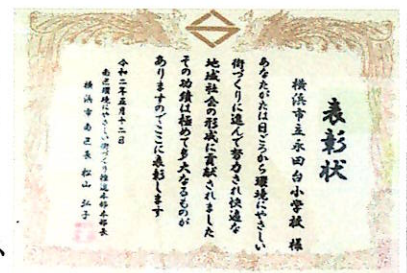 表彰状
横浜市立永田台小学校 様
あなたがたは日ごろから環境にやさしい
街づくりに進んで努力され快適な
地域社会の形成に貢献されました
その功績は極めて多大なるものが
ありますのでここに表彰します
令和二年五月十二日
南区環境にやさしい街づくり推進本部本部長
横浜市南区長 松山弘子